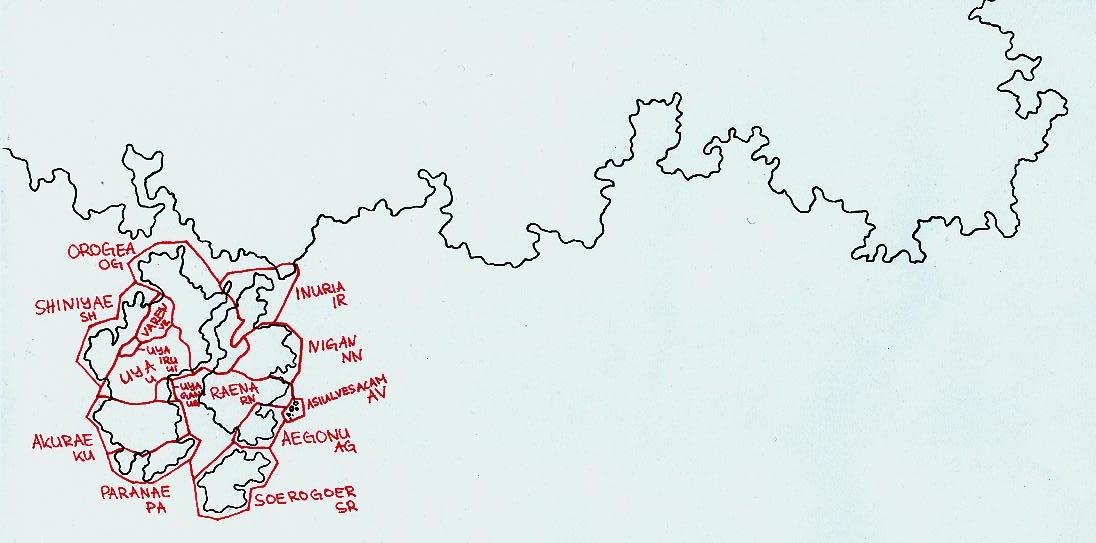 OROGEA
OG
SHINIYAE
SH
VAREN
VR
INURIA
IR
NIGAN
NN
UYA
IRU
UI
UYA
U
UYA
RAENA
RN
ASIALVESACAM
AV
AKURAE
KU
AEGONU
AG
PARANAE
PA
SOEROGOER
SR